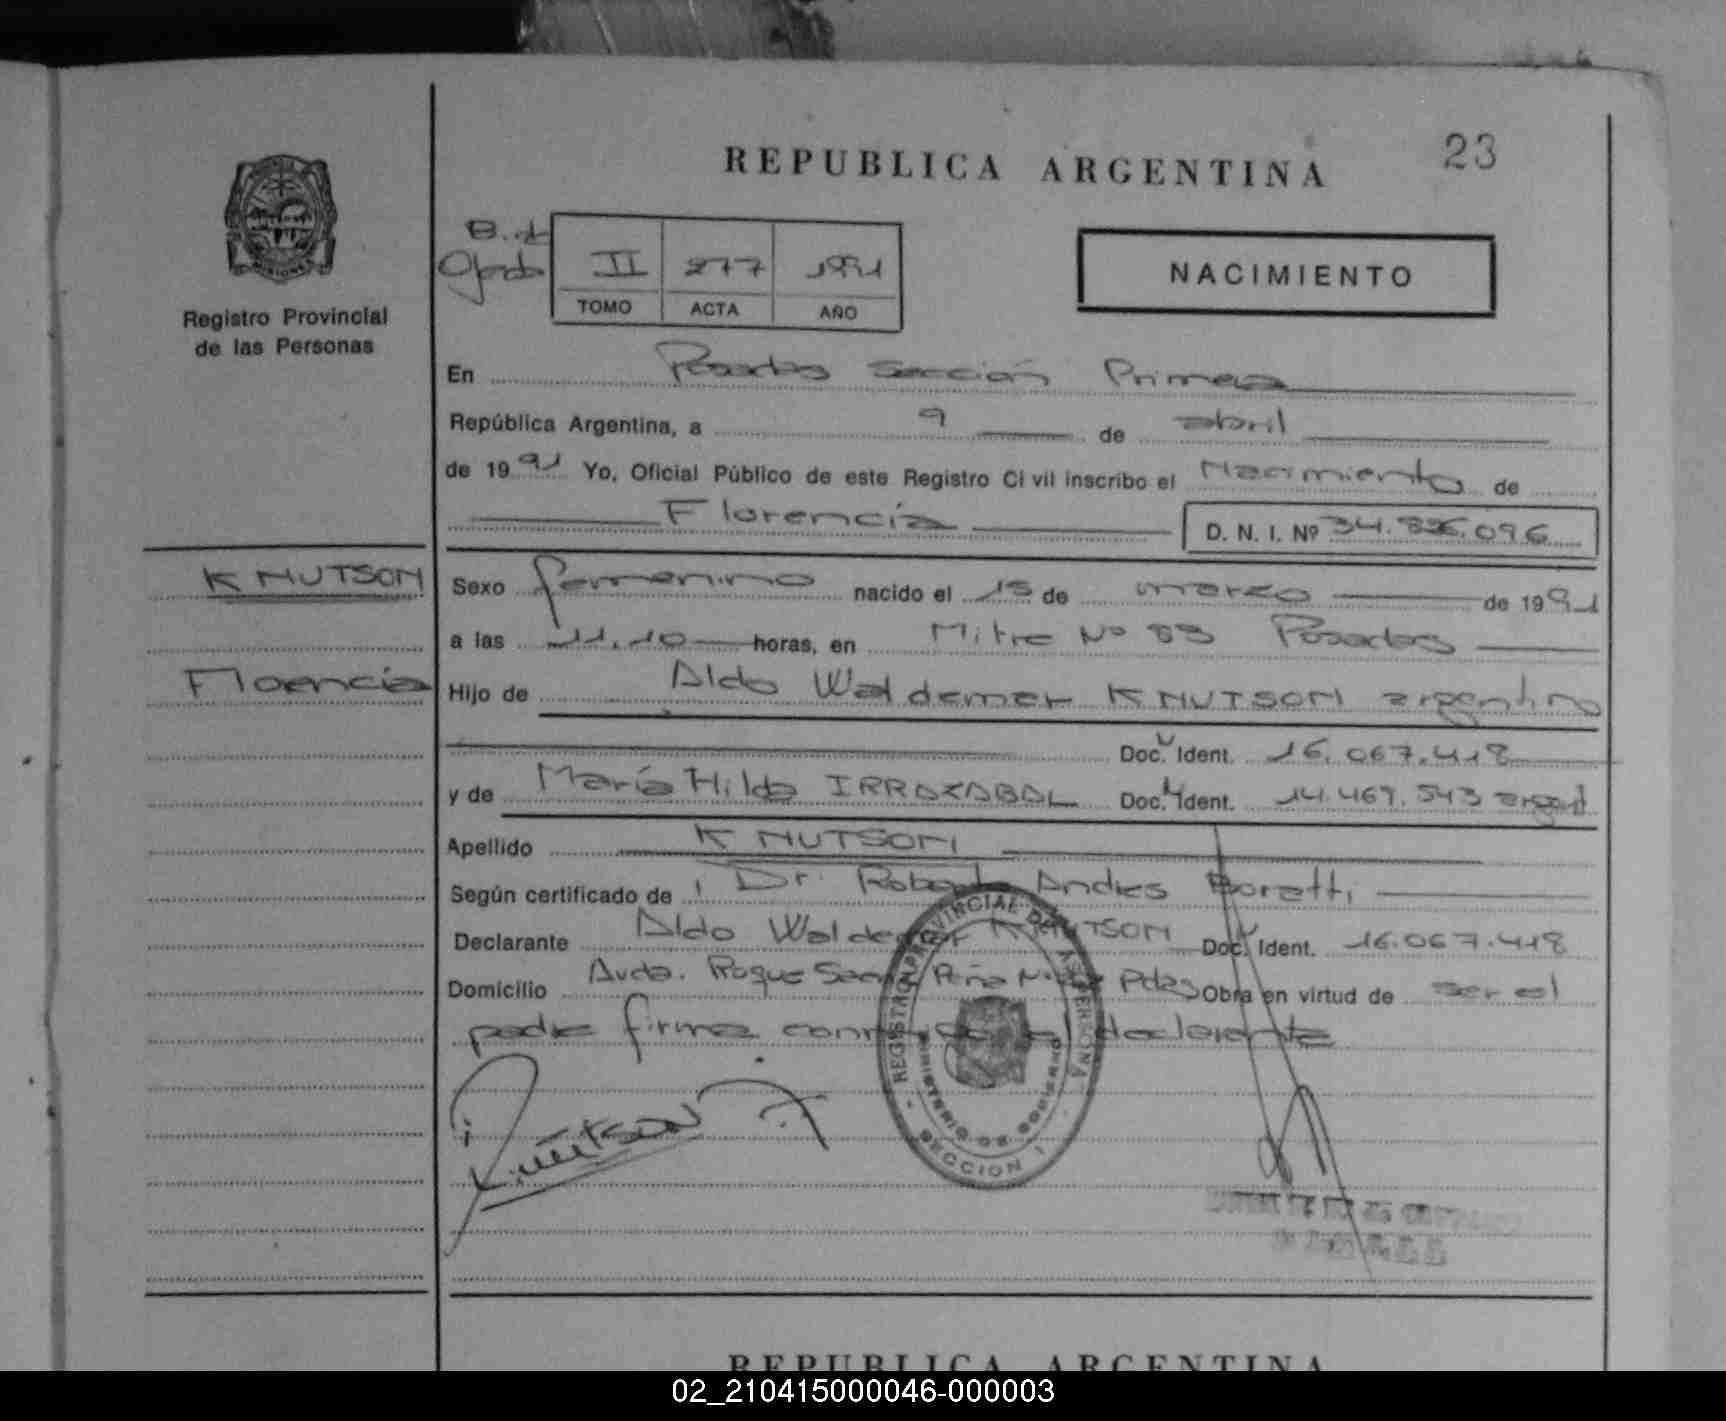 REPUBLICA ARGENTINA
23
Registro Provincial
de las Personas
B. d
II 277 1991
TOMO ACTA AÑO
NACIMIENTO
En Posadas Sección Primera
República Argentina, a 9 de abril
de 1991 Yo, Oficial Público de este Registro Civil inscribo el Nacimiento de
Florencia D. N. I. Nº 34.896.096
KNUTSON
Sexo femenino nacido el 15 de marzo de 1991
a las 11,10 horas, en Mitre Nº 83 Posadas
Floencia
Hijo de Aldo Waldemar KNUTSON argentino
Doc. Ident. 16.067.418
y de María Hilda IRRAZABAL Doc. Ident. 14.469.543 argent
Apellido KNUTSON
Según certificado de Dr. Roberto Andres Boretti
Declarante Aldo Waldemar KNUTSON Doc. Ident. 16.067.418
Domicilio Avda. Roque Saenz Peña Pdas Obra en virtud de ser el
padre firma conmigo el declarante
Knutson
REGISTRO PROVINCIAL DE LAS PERSONAS
MINISTERIO DE GOBIERNO
SECCION 1
REPUBLICA ARGENTINA
02_210415000046-000003